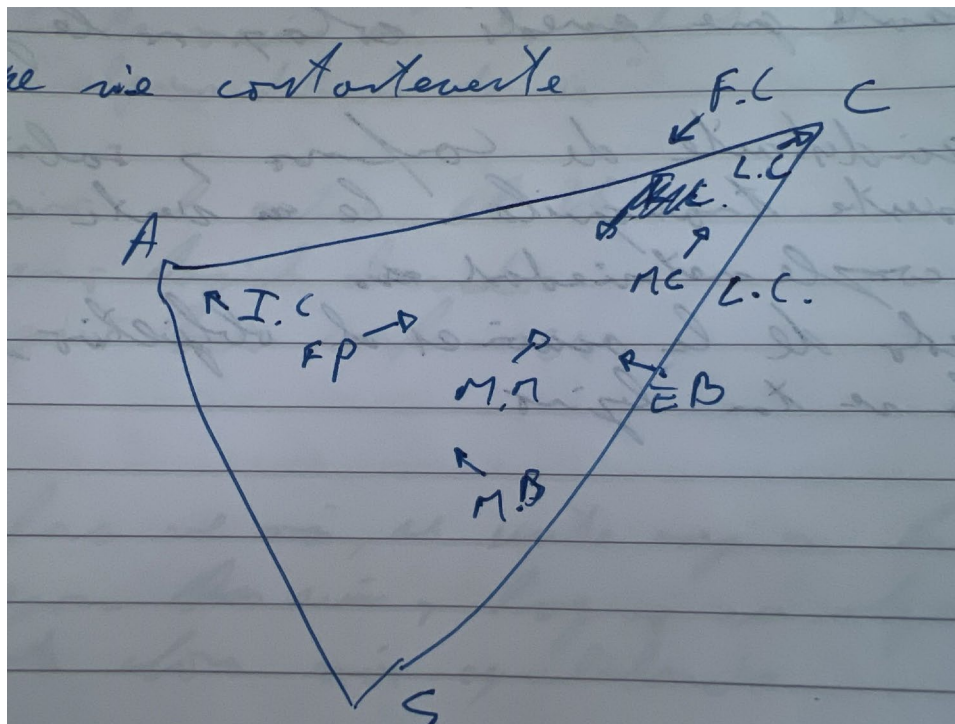 me constantemente
F.C
C
L.C.
A
MC
L.C.
I.C
FP
M.M
EB
M.B
S